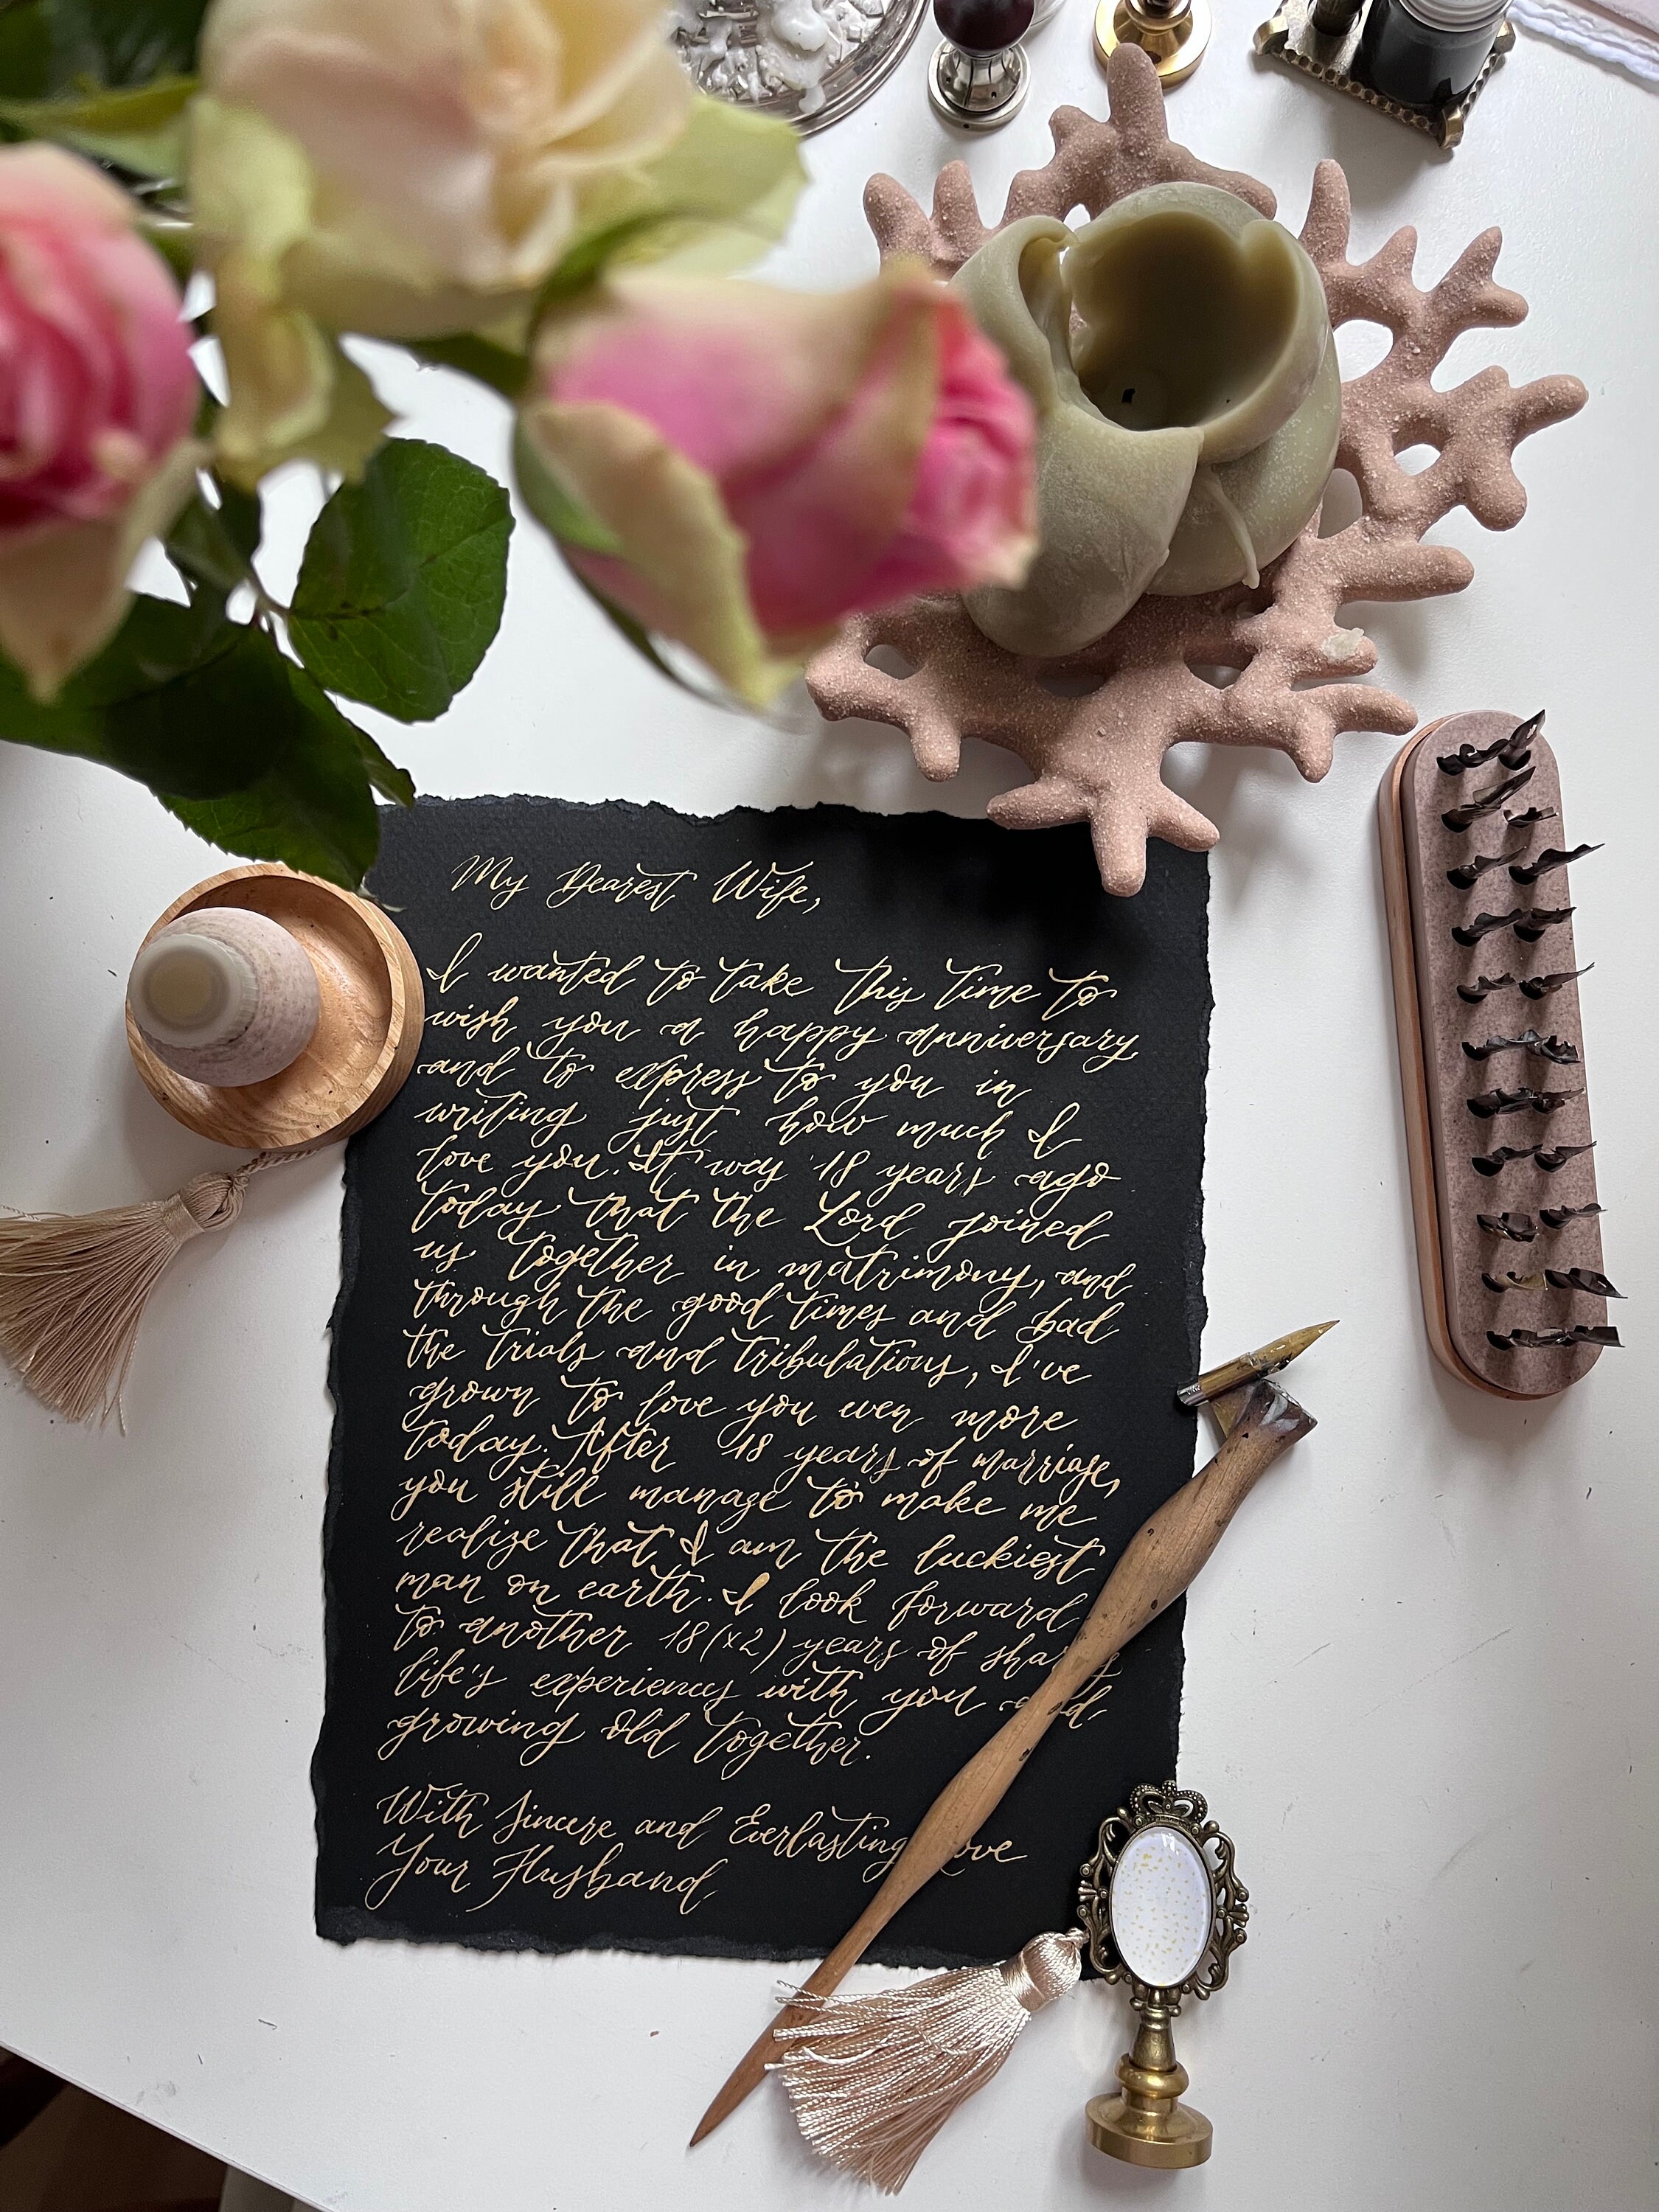 My Dearest Wife,
I wanted to take this time to
wish you a happy anniversary
and to express to you in
writing just how much I
love you. It was 18 years ago
today that the Lord joined
us together in matrimony, and
through the good times and bad
the trials and tribulations, I've
grown to love you even more
today. After 18 years of marriage,
you still manage to make me
realize that I am the luckiest
man on earth. I look forward
to another 18 (x2) years of
life's experiences with you and
growing old together.
With Sincere and Everlasting Love
Your Husband,